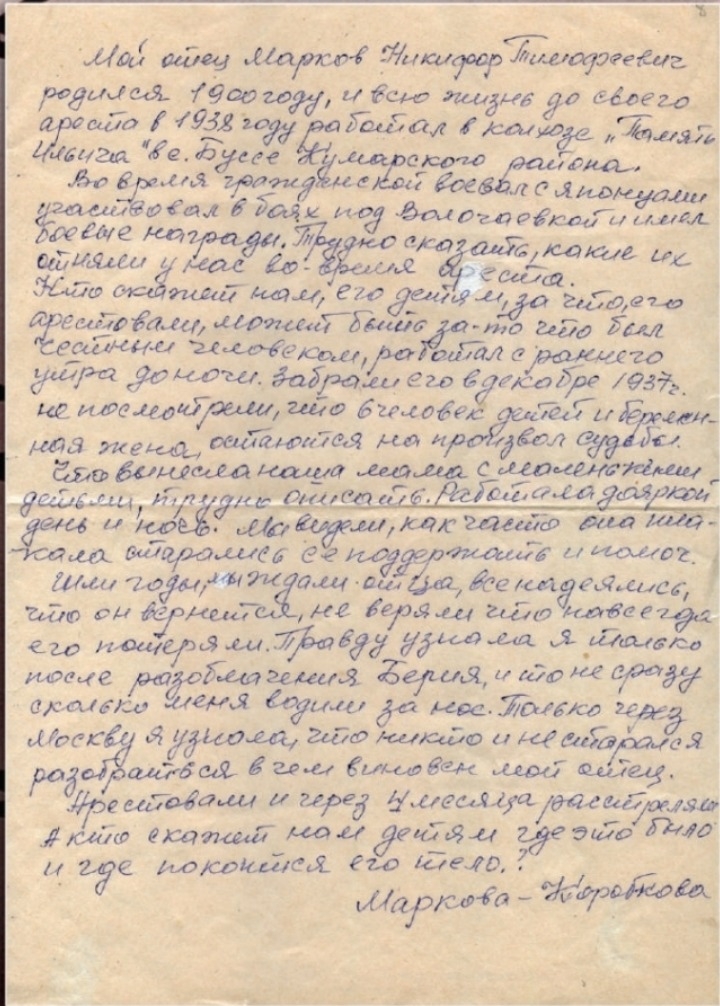 8
Мой отец Марков Никифор Тимофеевич
родился 1900 году, и всю жизнь до своего
ареста в 1938 году работал в колхозе „Память
Ильича" в с. Буссе Кумарского района.
Во время гражданской воевал с японцами
участвовал в боях под Волочаевкой и имел
боевые награды. Трудно сказать, какие их
отняли у нас во-время ареста.
Кто скажет нам, его детям, за что, его
арестовали, может быть за-то что был
честным человеком, работал с раннего
утра до ночи. Забрали его в декабре 1937 г.
не посмотрели, что 6 человек детей и беремен-
ная жена, остаются на произвол судьбы.
Что вынесла наша мама с маленькими
детьми, трудно описать. Работала дояркой
день и ночь. Мы видели, как часто она пла-
-кала старались её поддержать и помоч.
Шли годы, мы ждали отца, все надеялись,
что он вернется, не веряли что навсегда
его потеряли. Правду узнала я только
после разоблачения Берия, и то не сразу
сколько меня водили за нос. Только через
Москву я узнала, что никто и не старался
разобраться в чем виновен мой отец.
Арестовали и через 4 месяца расстреляли
А кто скажет нам детям где это было
и где покоится его тело.?
Маркова - Коробкова